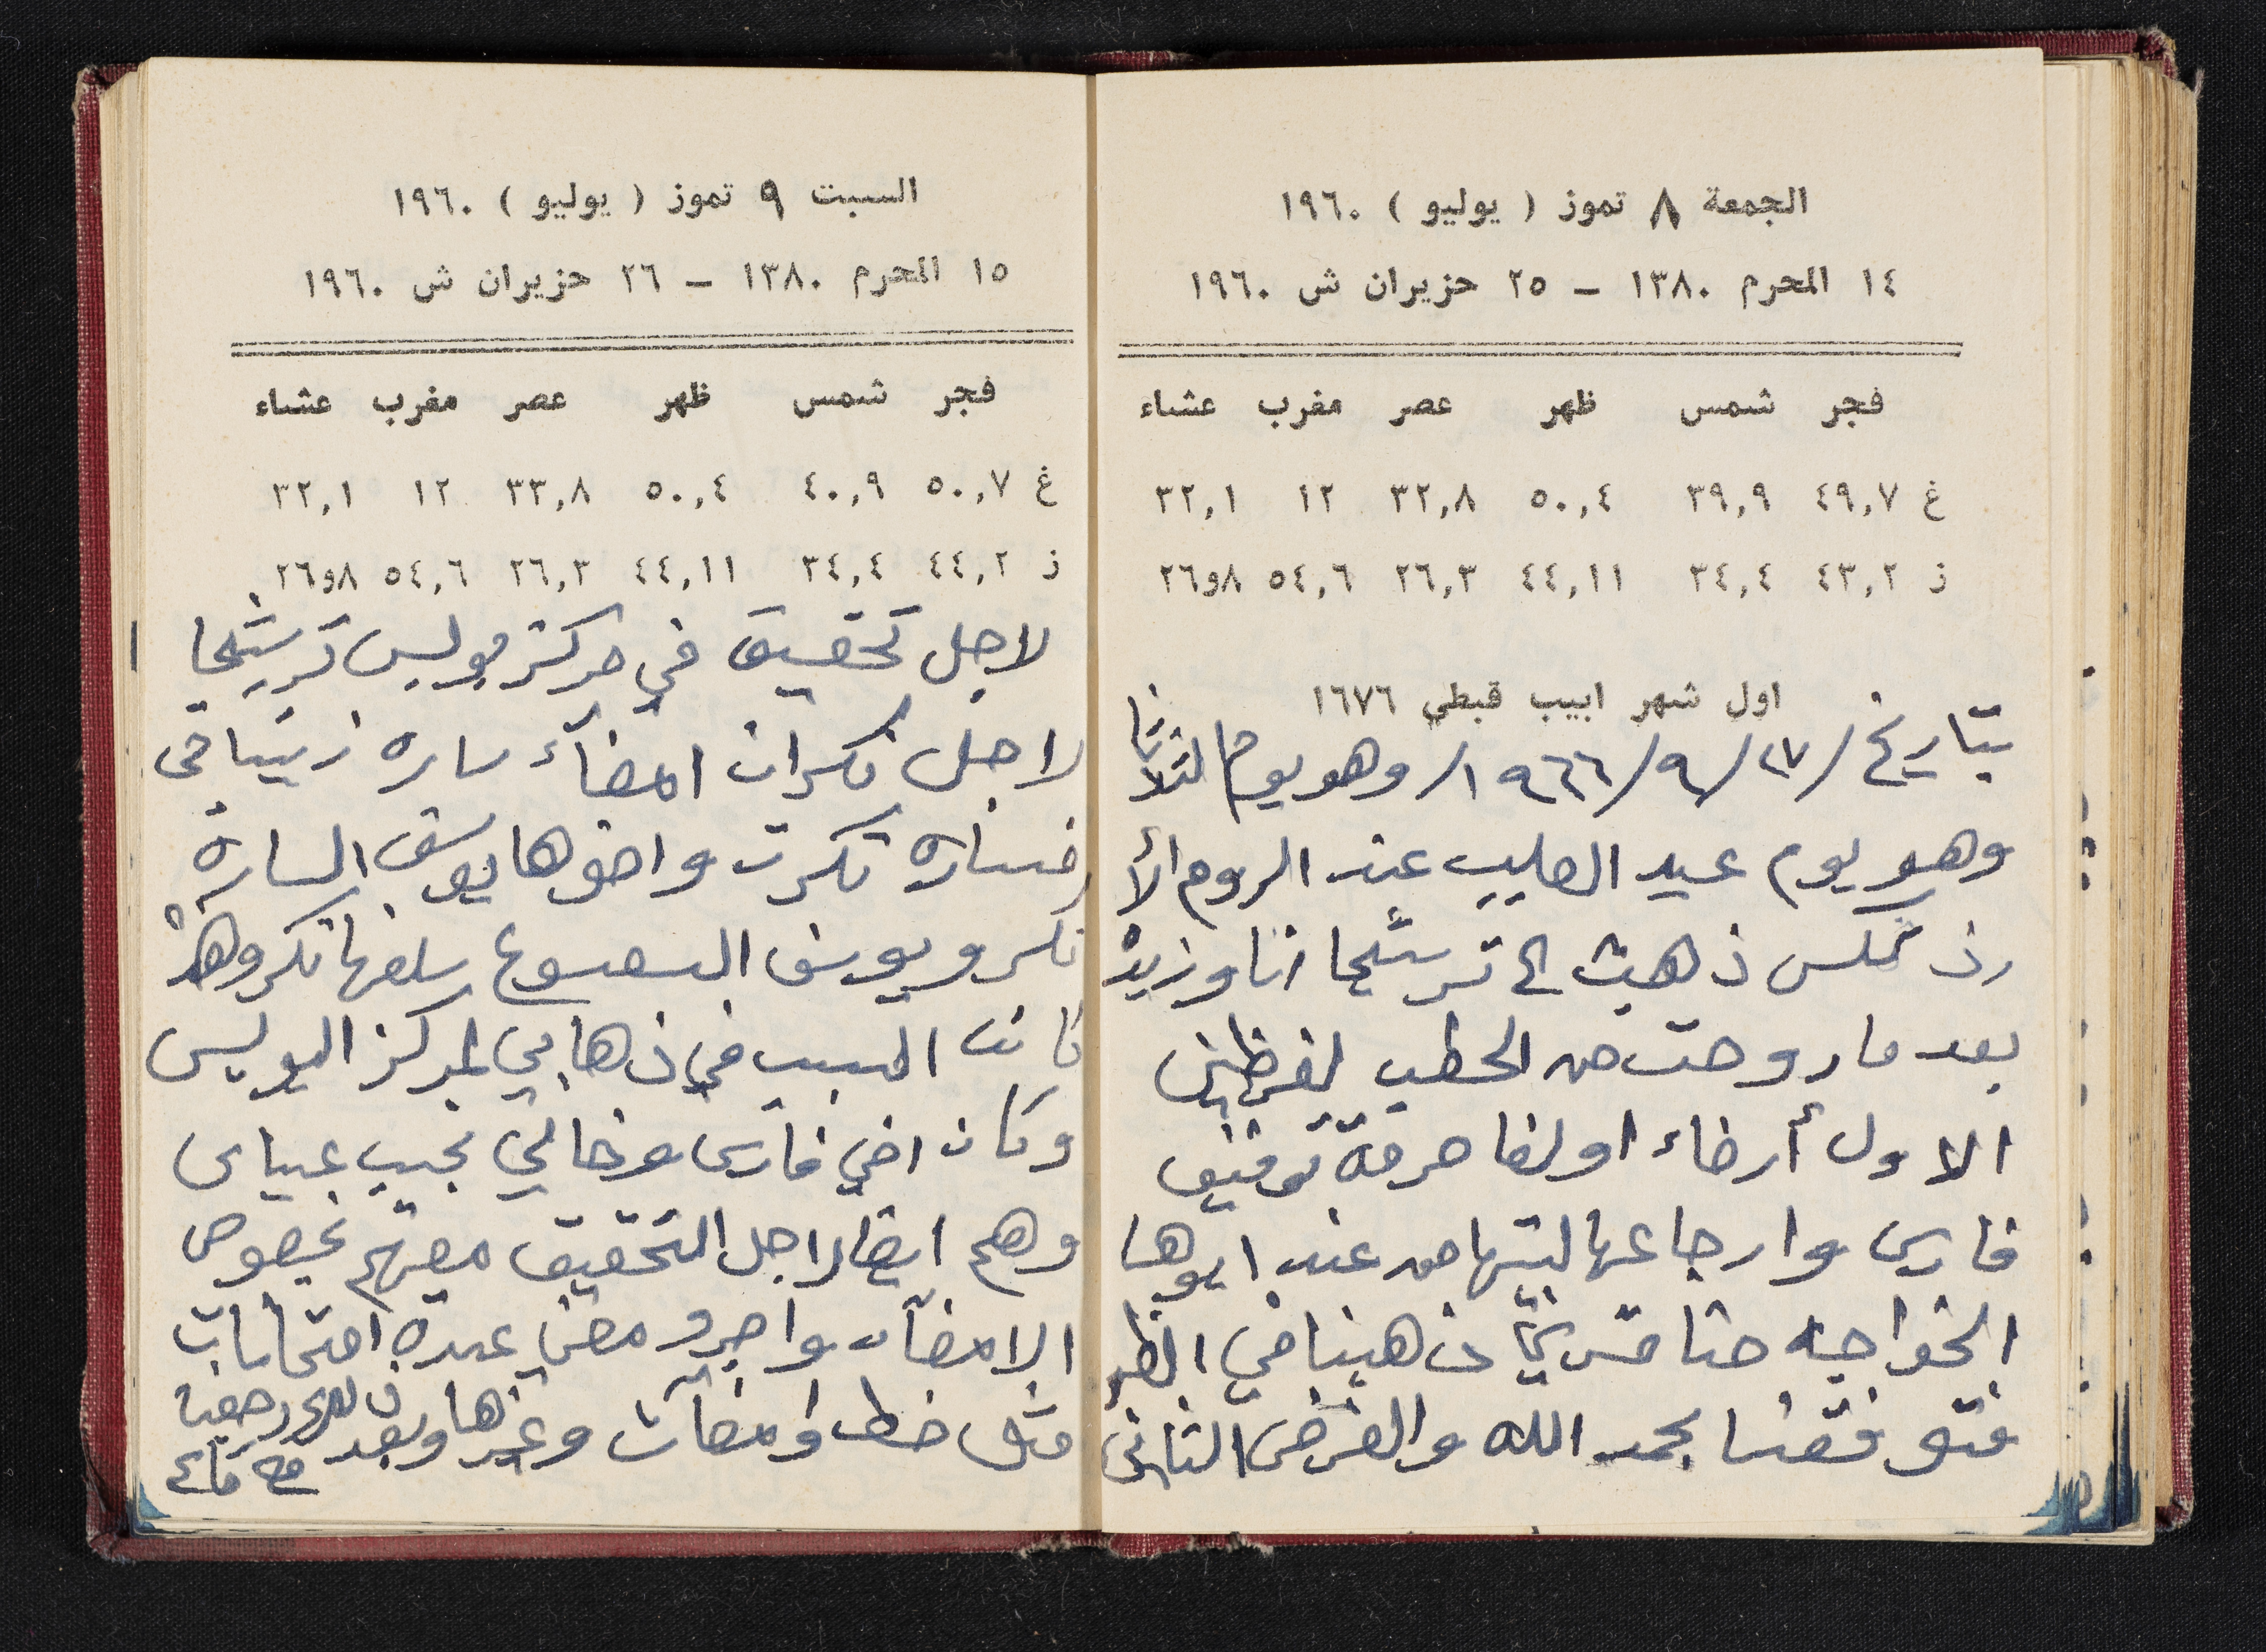 الجمعة ٨ تموز ( يوليو ) ١٩٦٠
١٤ المحرم ١٣٨٠ – ٢٥ حزيران ش ١٩٦٠
فجر شمس ظهر عصر مغرب عشاء
غ ٤٩,٧ ٣٩,٩ ٥٠,٤ ٣٢,٨ ١٢ ٣٢,١
ز ٤٣,٢ ٣٤,٤ ٤٤,١١ ٢٦,٣ ٥٤,٦ ٨و٢٦
اول شهر ابيب قبطي ١٦٧٦
بتاريخ /٢٧/٩/١٩٦٦/ وهو يوم الثلاثا
وهو يوم عيد الصليب عند الروم الأ
رذكس ذهبت الى ترشيحا انا وزيد
بعد ما روحت من الحطب لغرضين
الاول أرضاء اولفا حرمة توفيق
فارس وارجاعها لبيتها من عند ابوها
الخواجه حنا ذهبنا في الظهر
فتوفقنا بحمد الله والغرض الثاني
السبت ٩ تموز ( يوليو ) ١٩٦٠
١٥ المحرم ١٣٨٠ – ٢٦ حزيران ش ١٩٦٠
فجر شمس ظهر عصر مغرب عشاء
غ ٥٠,٧ ٤٠,٩ ٥٠,٤ ٣٣,٨ ١٢ ٣٢,١
ز ٤٤,٢ ٣٤,٤ ٤٤,١١ ٢٦,٣ ٥٤,٦ ٨و٢٦
لاجل تحقيق في مركز بوليس ترشيحا
لاجل نكران امضآء ساره زيتباخي
فساره نكرت واخوها يوسف الساره
نكر ويوسف البسعسوع سلفها نكر وهذ
كانت السبب في ذهابي لمركز البوليس
وكان اخي فارس وخالي نجيب عباس
وهم ايضا لاجل التحقيق معهم بخصوص
الامضآت واجرو معي عدة امتحانات
مثل خط وامضآت وغيرها وبعد رجعنا